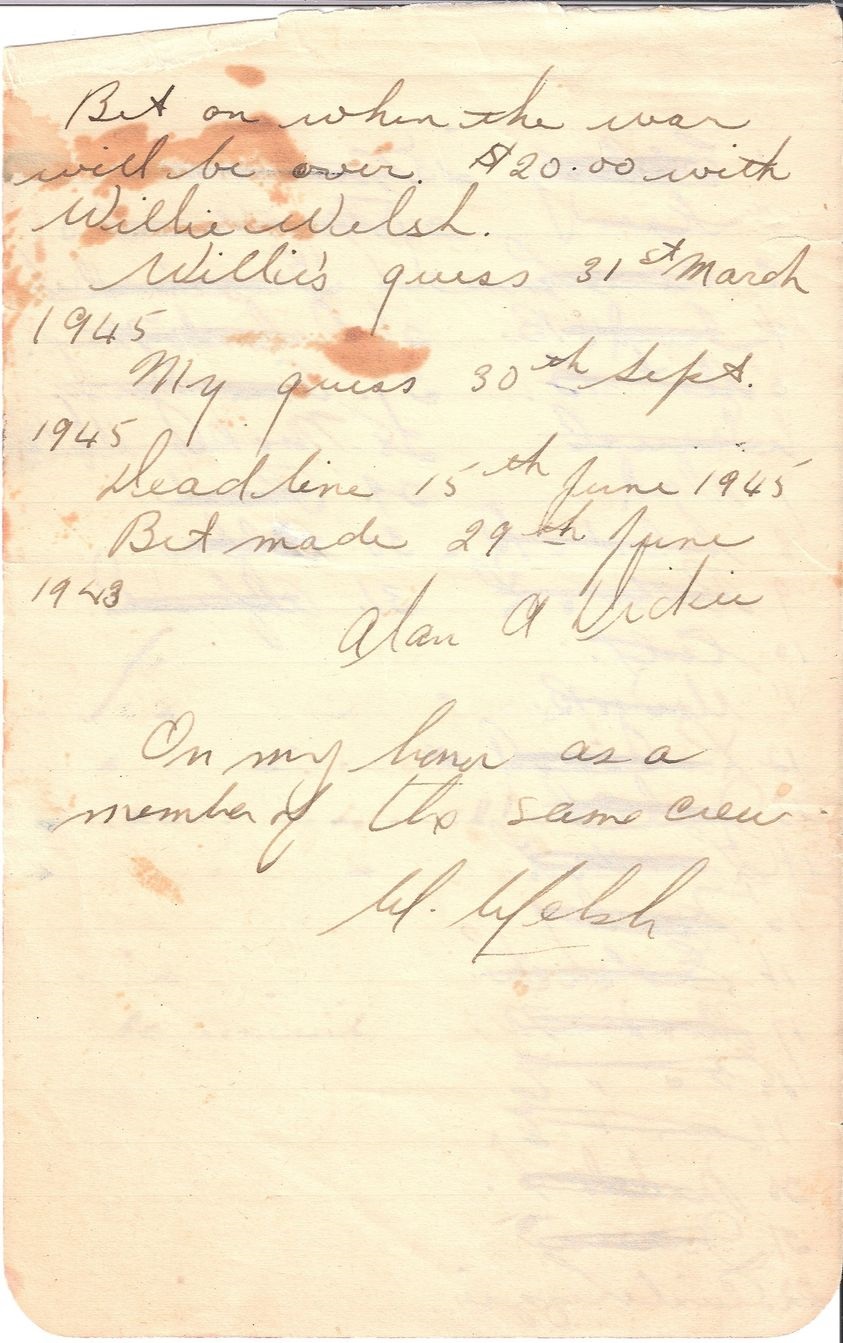 Bet on when the war
will be over. $20.00 with
Willie Welsh.
Willie's guess 31st March
1945
My guess 30th Sept.
1945
Deadline 15th June 1945
Bet made 29th June
1943
Alan A Dickie
On my honor as a
member of the same crew.
W. Welsh